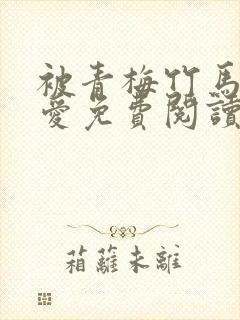 被青梅竹馬
愛免費閱讀
箱蘺未離